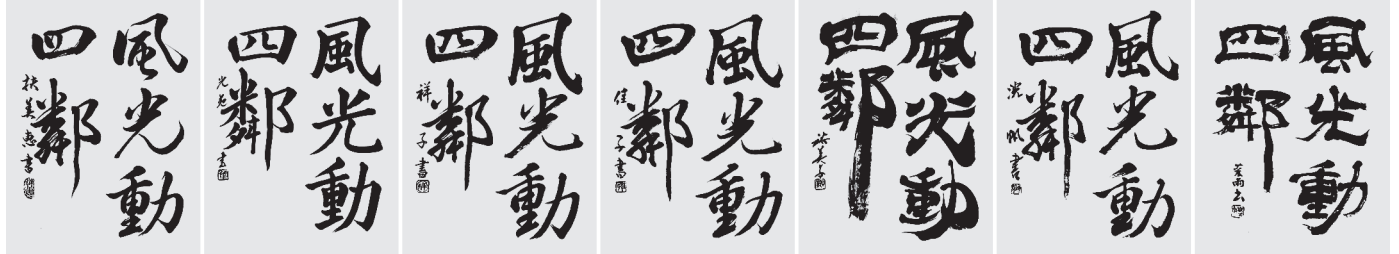 風光動
四鄰
扶美惠書
風光動
四鄰
光苑書
風光動
四鄰
祥子書
風光動
四鄰
佳子書
風光動
四鄰
風光動
四鄰
風光動
四鄰